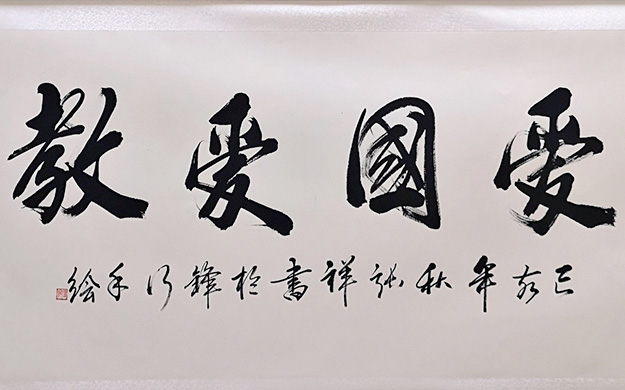 愛國愛教
己亥年秋張祥書於鋒行手繪